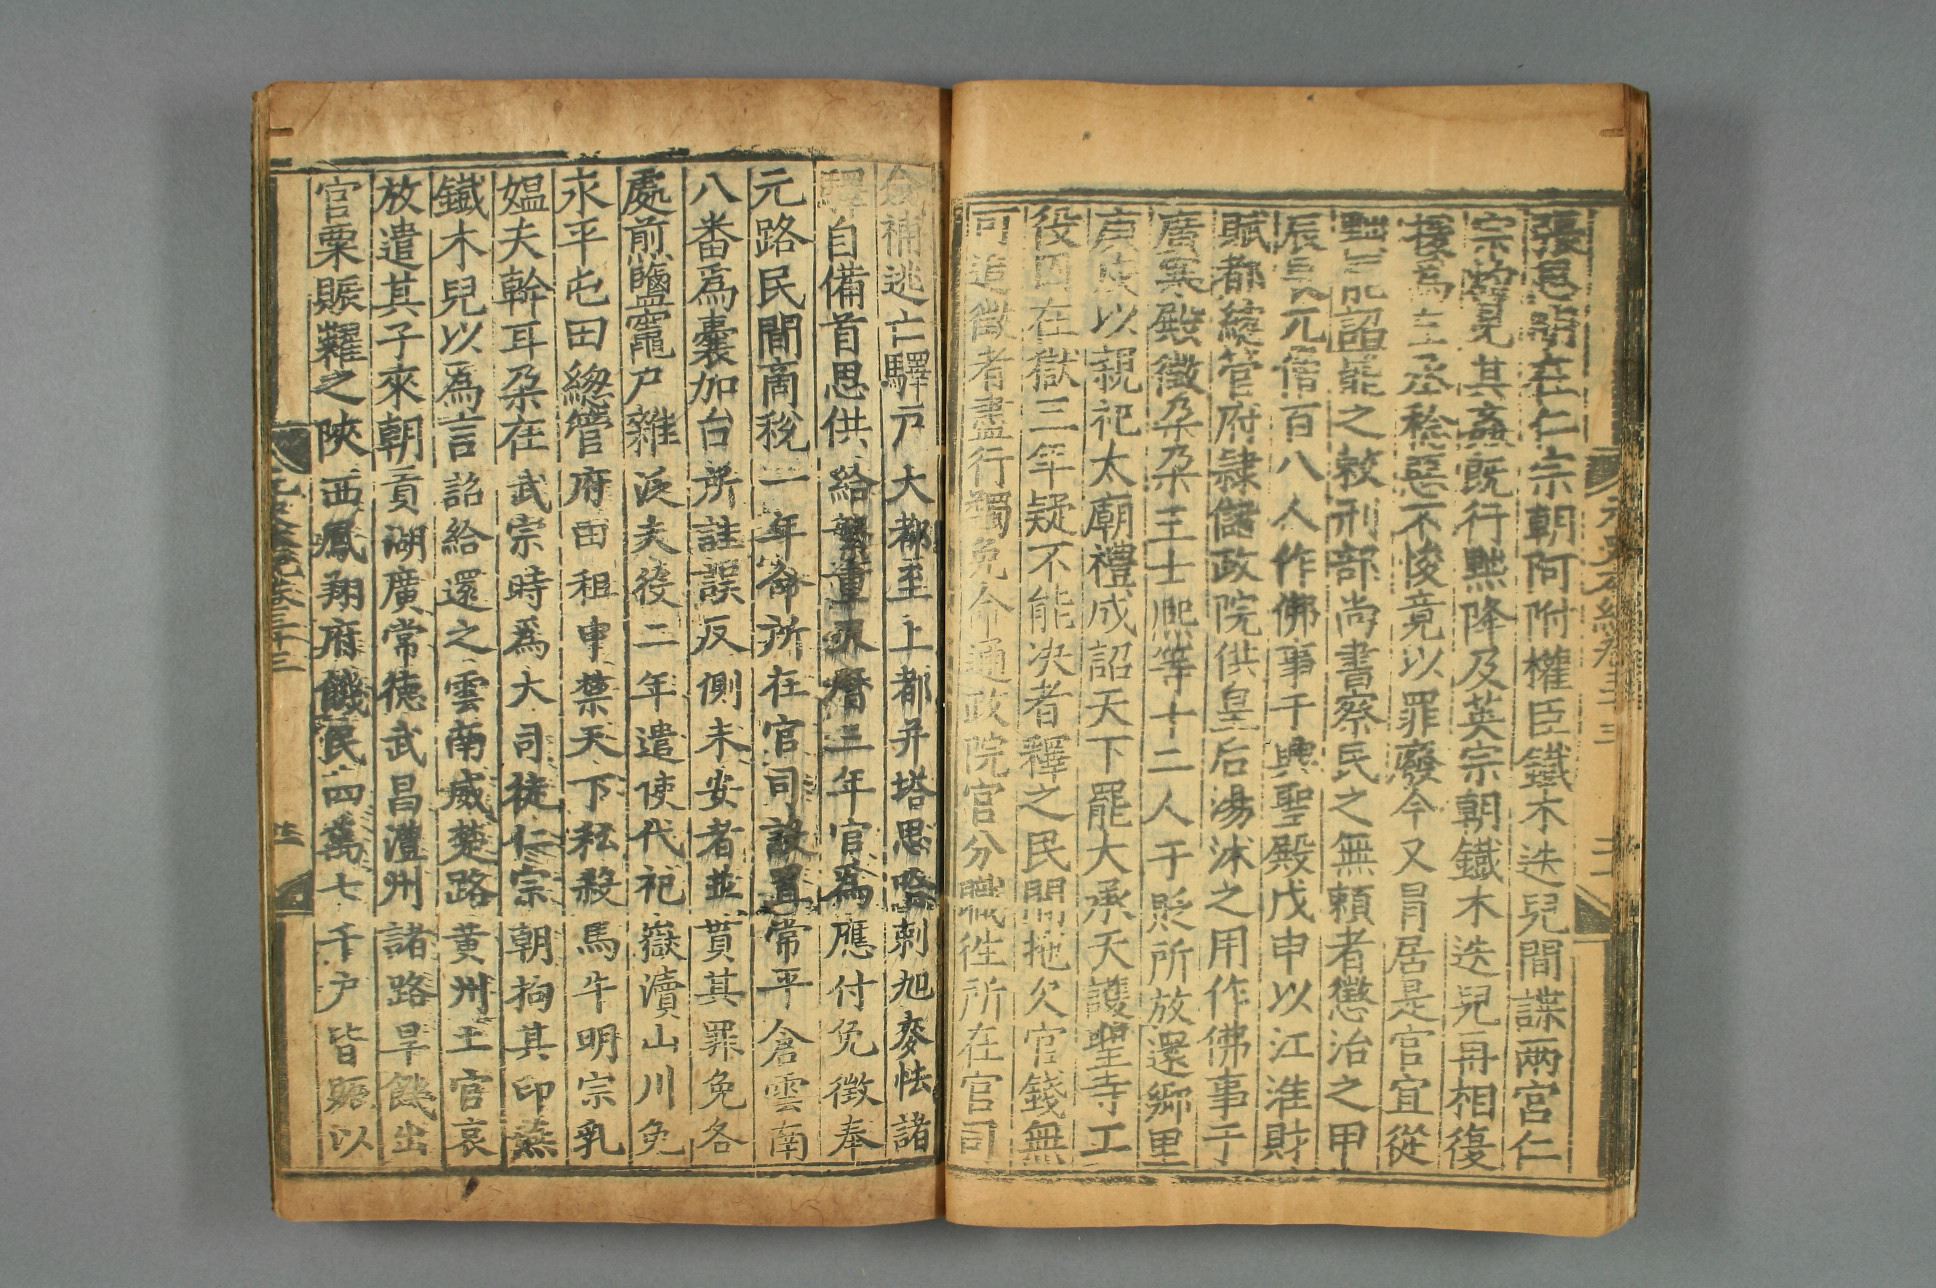 張思明在仁宗朝阿附權臣鐵木迭兒間諜兩宮仁
宗灼見其姦既行黜降及英宗朝鐵木迭兒再相復
援為左丞稔惡不悛竟以罪廢今又冒居是官宜從
黜罷詔罷之敕刑部尚書察民之無賴者懲治之甲
辰集元僧百八人作佛事于興聖殿戊申以江淮財
賦都緫管府隷儲政院供皇后湯沐之用作佛事于
廣寒殿徵朶朶王士熙等十二人于貶所放還鄉里
庚戌以親祀太廟禮成詔天下罷大承天護聖寺工
役囚在獄三年疑不能决者釋之民間拖欠官錢無
可追徵者盡行蠲免命通政院官分職徃所在官司
僉補逃亡驛戸大都至上都并塔思哈剌旭麥怯諸
驛自備首思供給繁重天曆三年官爲應付免徵奉
元路民間商稅一年命所在官司設置常平倉雲南
八番爲囊加台所詿誤反側未安者並貰其罪免各
處煎鹽竈戸雜泛夫役二年遣使代祀嶽瀆山川免
永平屯田緫管府田租申禁天下私殺馬牛明宗乳
媼夫幹耳朶在武宗時爲大司徒仁宗朝拘其印燕
鐵木兒以為言詔給還之雲南威楚路黃州土官哀
放遣其子來朝貢湖廣常德武昌澧州諸路旱饑出
官粟賑糶之陝西鳳翔府饑民四萬七千戸皆賑以